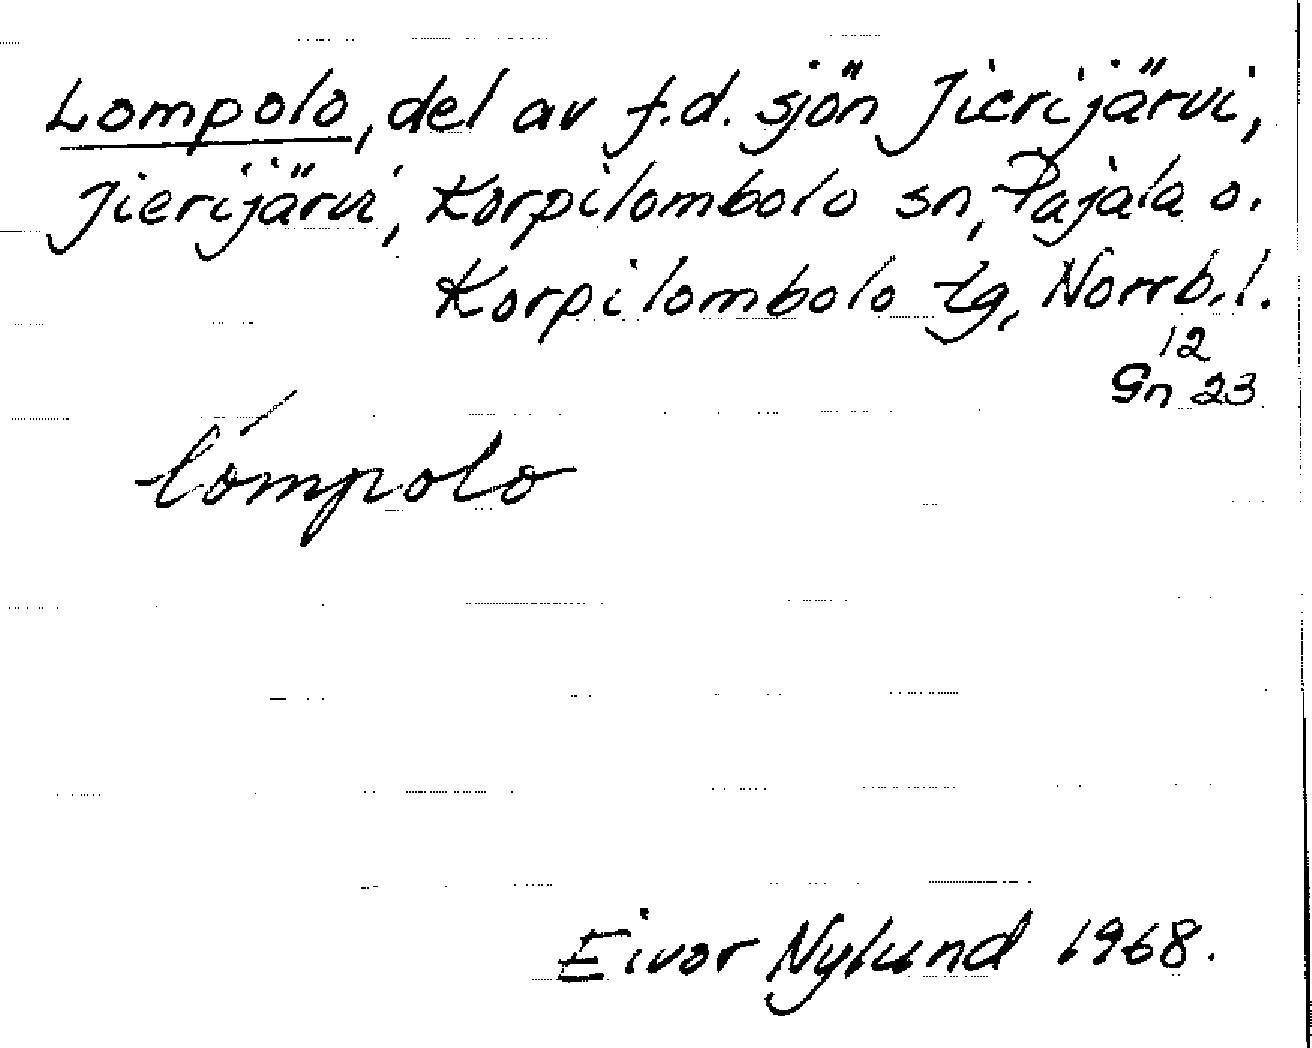 Lompolo, del av f.d. sjön Jierijärvi,
Jierijärvi, Korpilombolo sn, Pajala o.
Korpilombolo tg, Norrb. l.
12
Gn 23
lómpolo
Eivor Nylund 1968.